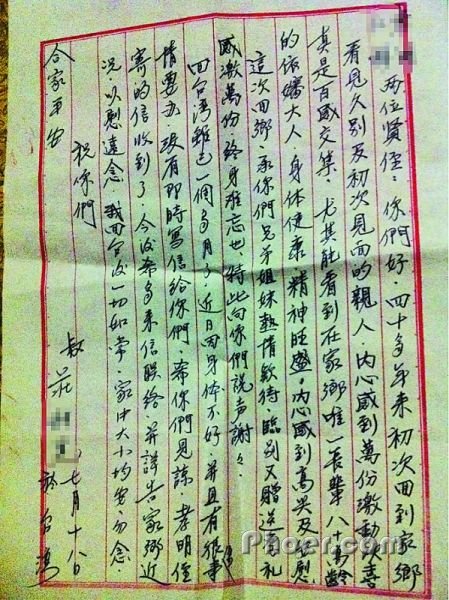 两位賢侄：你們好．四十多年来初次回到家鄉
看見久别及初次見面的親人．内心感到萬份激動欢喜
真是百感交集．尤其能看到在家鄉唯一长輩八高齡
的依嬸大人．身体健康．精神旺盛．内心感到高兴及安慰
這次回鄉．承你們兄弟姐妹熱情欵待．臨别又贈送礼
感激萬份终身难忘也．特此向你們説声謝々．
回台湾雖已一個多月了．近日因身体不好．并且有很多事
情要办．没有即時寫信給你們．希你們見諒．孝明侄
寄的信收到了．今後希多来信联络．并詳告家鄉近
况以慰遠念．我回台後一切如常．家中大小均安．勿念．
祝你們
合家平安
叔 莊
七月十八日
於台湾
Phoer.com